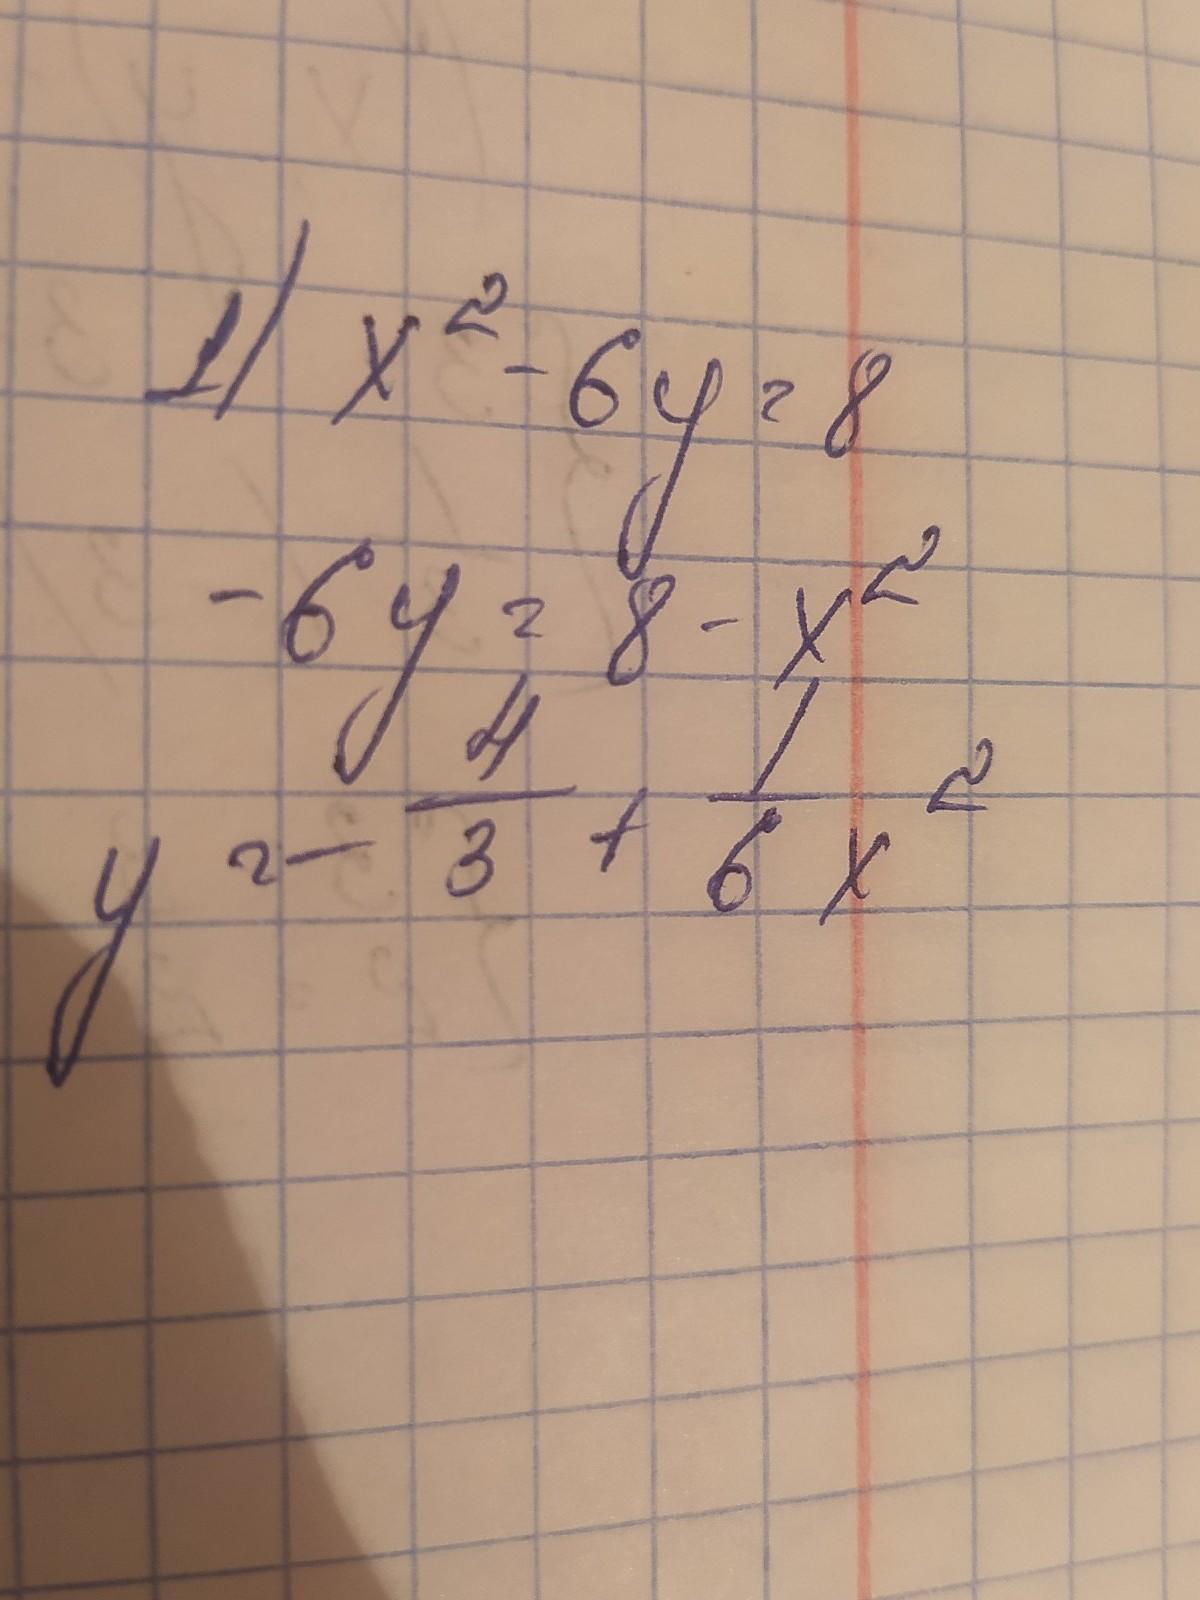 1) x² - 6y = 8
-6y = 8 - x²
y = - 4/3 + 1/6 x²